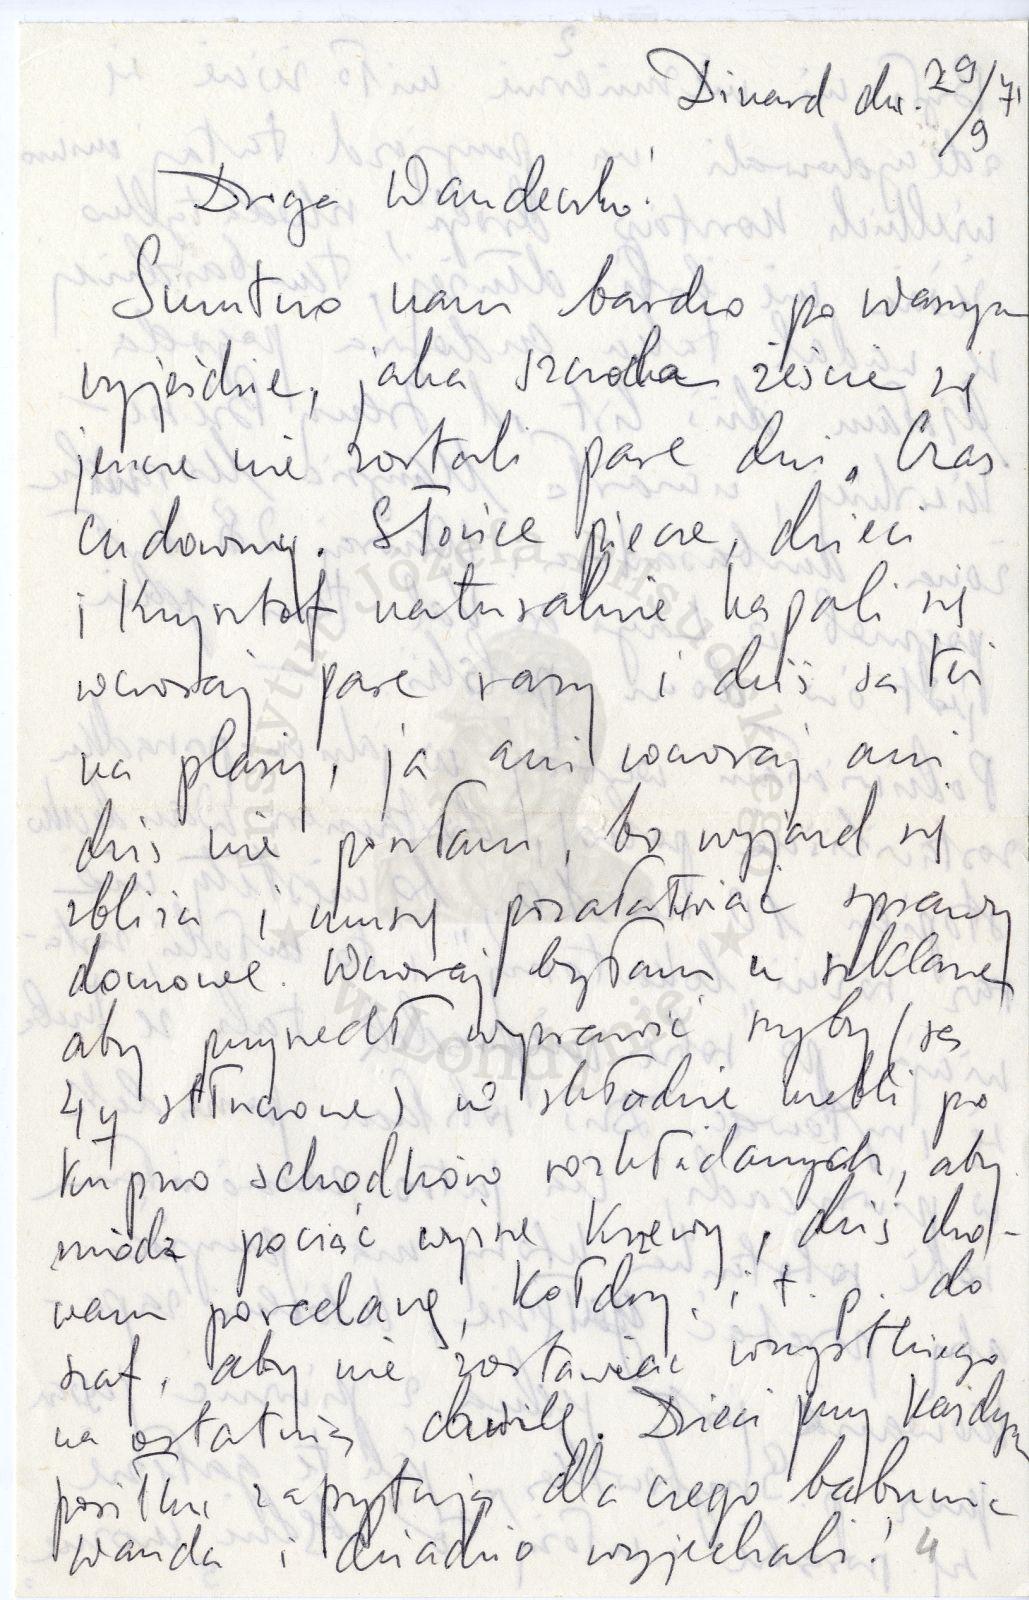 Dinard dn. 29/9 71
Droga Wandeczko!
Smutno nam bardzo po waszym
wyjeździe, jaka szkoda żeście się
jeszcze nie zostali parę dni. Czas
cudowny. Słońce piecze, dzieci
i Krzysztof naturalnie kąpali się
wczoraj parę razy i dziś są też
na plaży, ja ani wczoraj ani
dziś nie poszłam, bo wyjazd się
zbliża i muszę pozałatwiać sprawy
domowe. Wczoraj byłam u szklarza
aby przyszedł wprawić szyby (są
4y stłuczone) w składzie mebli po
kupno schodków rozkładanych, aby
módz pociąć wyższe krzewy, dziś cho-
wam porcelanę, kołdry, i t. p. do
szaf, aby nie zostawiać wszystkiego
na ostatnią chwilę. Dzieci przy każdym
posiłku zapytują dla czego babunia
Wanda i dziadzio wyjechali! 4
Instytut Józefa Piłsudskiego
w Londynie